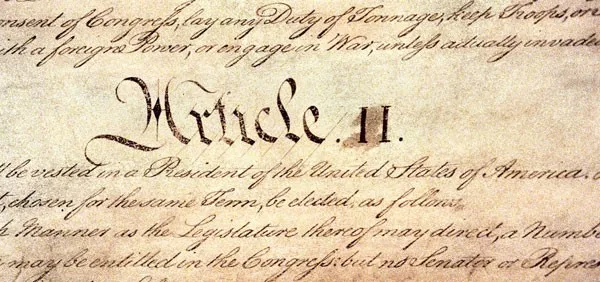 onsent of Congress, lay any Duty of Tonnage, keep Troops, or
ith a foreign Power, or engage in War, unless actually invade
Article. II.
be vested in a President of the United States of America.
chosen for the same Term, be elected, as follows
Manner as the Legislature thereof may direct, a Numb
may be entitled in the Congress: but no Senator or Repres